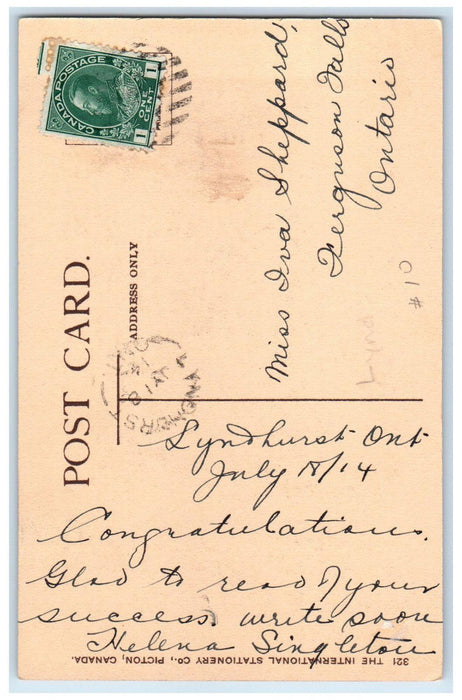 CANADA POSTAGE
1 ONE CENT 1
POST CARD.
ADDRESS ONLY
Miss Iva Sheppard,
Ferguson Falls
Ontario
#10
Lynd
LYNDHURST
JY 18
14
Lyndhurst Ont
July 18/14
Congratulations.
Glad to read of your
success. write soon
Helena Singleton
321 THE INTERNATIONAL STATIONERY CO., PICTON, CANADA.